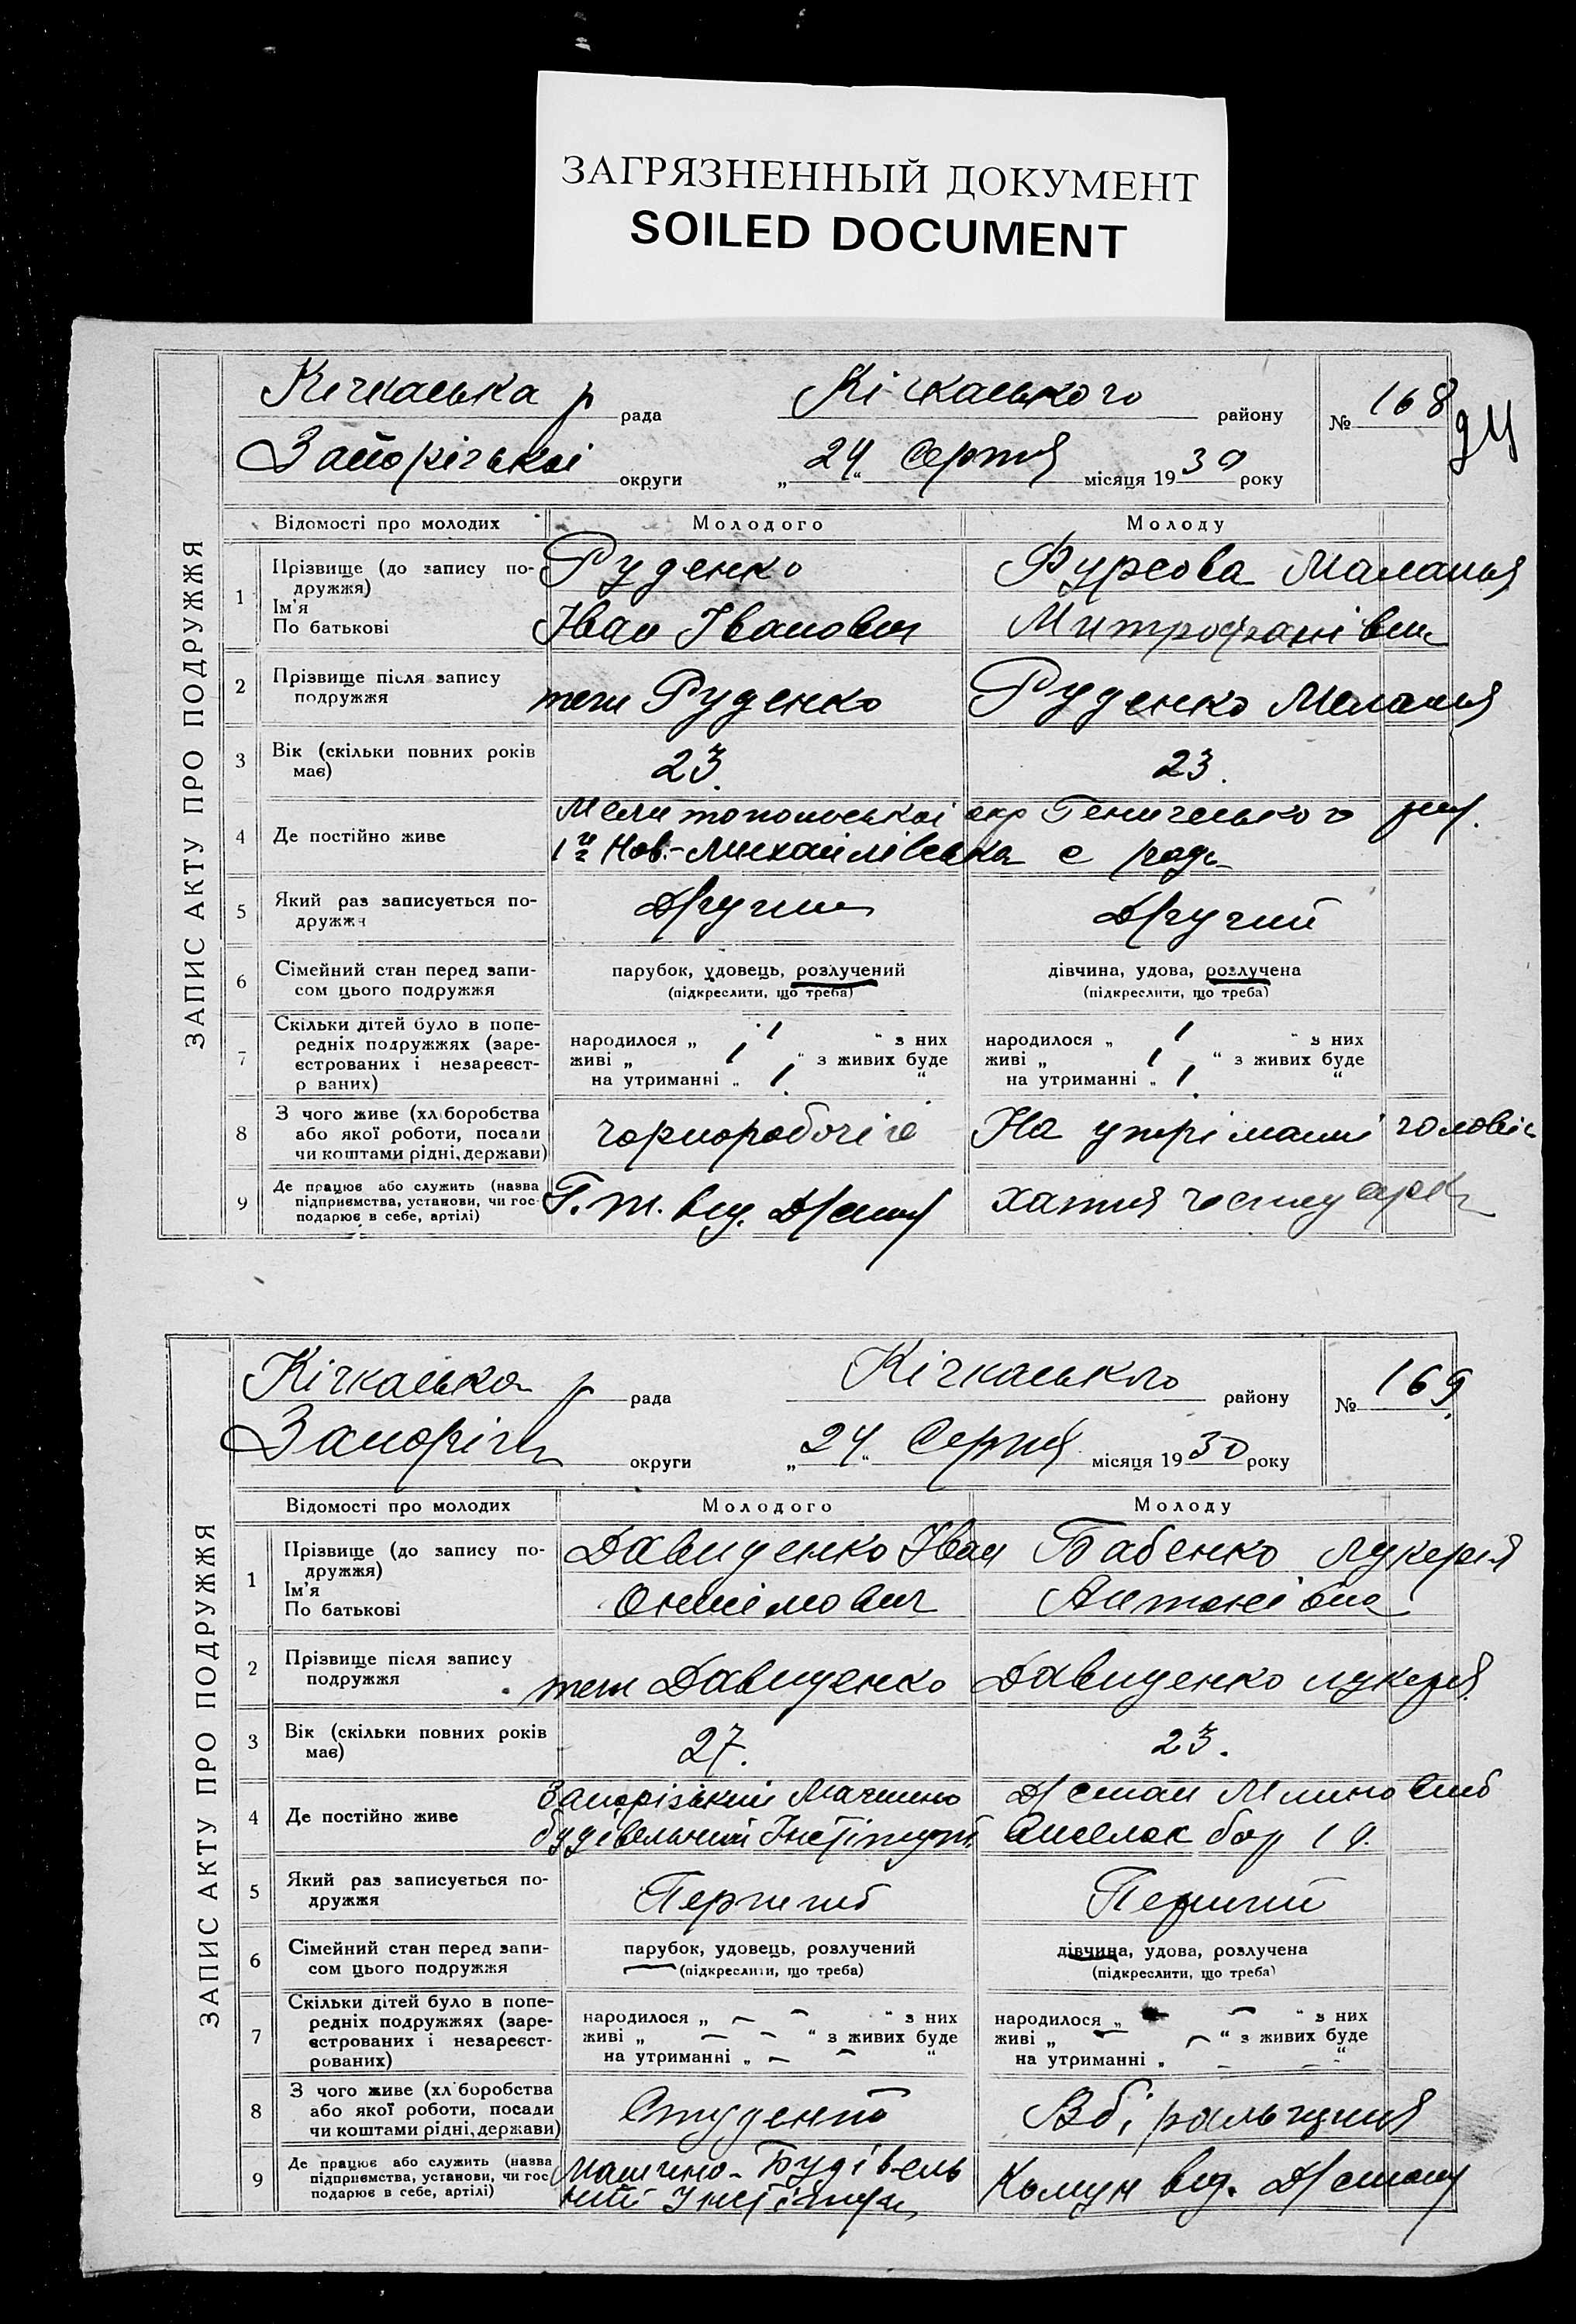 ЗАГРЯЗНЕННЫЙ ДОКУМЕНТ
SOILED DOCUMENT
ЗАПИС АКТУ ПРО ПОДРУЖЖЯ
Кічкаська р рада Кічкаського району № 168
Запорізької округи „ 24 “ Серпня місяця 1930 року
Відомості про молодих Молодого Молоду
1 Прізвище (до запису по- Руденко Фурсова Маланья
дружжя)
Ім'я
По батькові Іван Іванович Митрофанівна
2 Прізвище після запису
подружжя теж Руденко Руденко Маланья
3 Вік (скільки повних років
має) 23. 23.
4 Де постійно живе Мелитопольської окр Геничеського
Нов.-Михайлівська с рада
5 Який раз записується по-
дружжя Другий Другий
6 Сімейний стан перед запи- парубок, удовець, розлучений дівчина, удова, розлучена
сом цього подружжя (підкреслити, що треба) (підкреслити, що треба)
7 Скільки дітей було в попе-
редніх подружжях (заре- народилося „ 1 “ з них народилося „ 1 “ з них
єстрованих і незареєст- живі „ 1 “ з живих буде живі „ 1 “ з живих буде
р ваних) на утриманні „ 1 “ на утриманні „ 1 “
8 З чого живе (хл боробства
або якої роботи, посади чорноробочій На утріманні чоловік
чи коштами рідні, держави)
9 Де працює або служить (назва
підприємства, установи, чи гос- Г. т. від. Д/стану хатня
подарює в себе, артілі)
ЗАПИС АКТУ ПРО ПОДРУЖЖЯ
Кічкаська р рада Кічкаського району № 169
Запоріз округи „ 24 “ Серпня місяця 1930 року
Відомості про молодих Молодого Молоду
1 Прізвище (до запису по- Давиденко Іван Бабенко Лукерія
дружжя)
Ім'я
По батькові Онисімович Антонівна
2 Прізвище після запису
подружжя теж Давиденко Давиденко Лукерія
3 Вік (скільки повних років
має) 27. 23.
4 Де постійно живе Запорізький Машино Д/стан
будівельний Інстітут Виселок бар 19.
5 Який раз записується по-
дружжя Перший Перший
6 Сімейний стан перед запи- парубок, удовець, розлучений дівчина, удова, розлучена
сом цього подружжя (підкреслити, що треба) (підкреслити, що треба)
7 Скільки дітей було в попе-
редніх подружжях (заре- народилося „ – – “ з них народилося „ – “ з них
єстрованих і незареєст- живі „ – – “ з живих буде живі „ – – “ з живих буде
рованих) на утриманні „ – – “ на утриманні „ – – “
8 З чого живе (хл боробства
або якої роботи, посади Студент Вбіральщиця
чи коштами рідні, держави)
9 Де працює або служить (назва Машино-Будівель
підприємства, установи, чи гос ний Інстітут Комун від. Д/стану
подарює в себе, артілі)